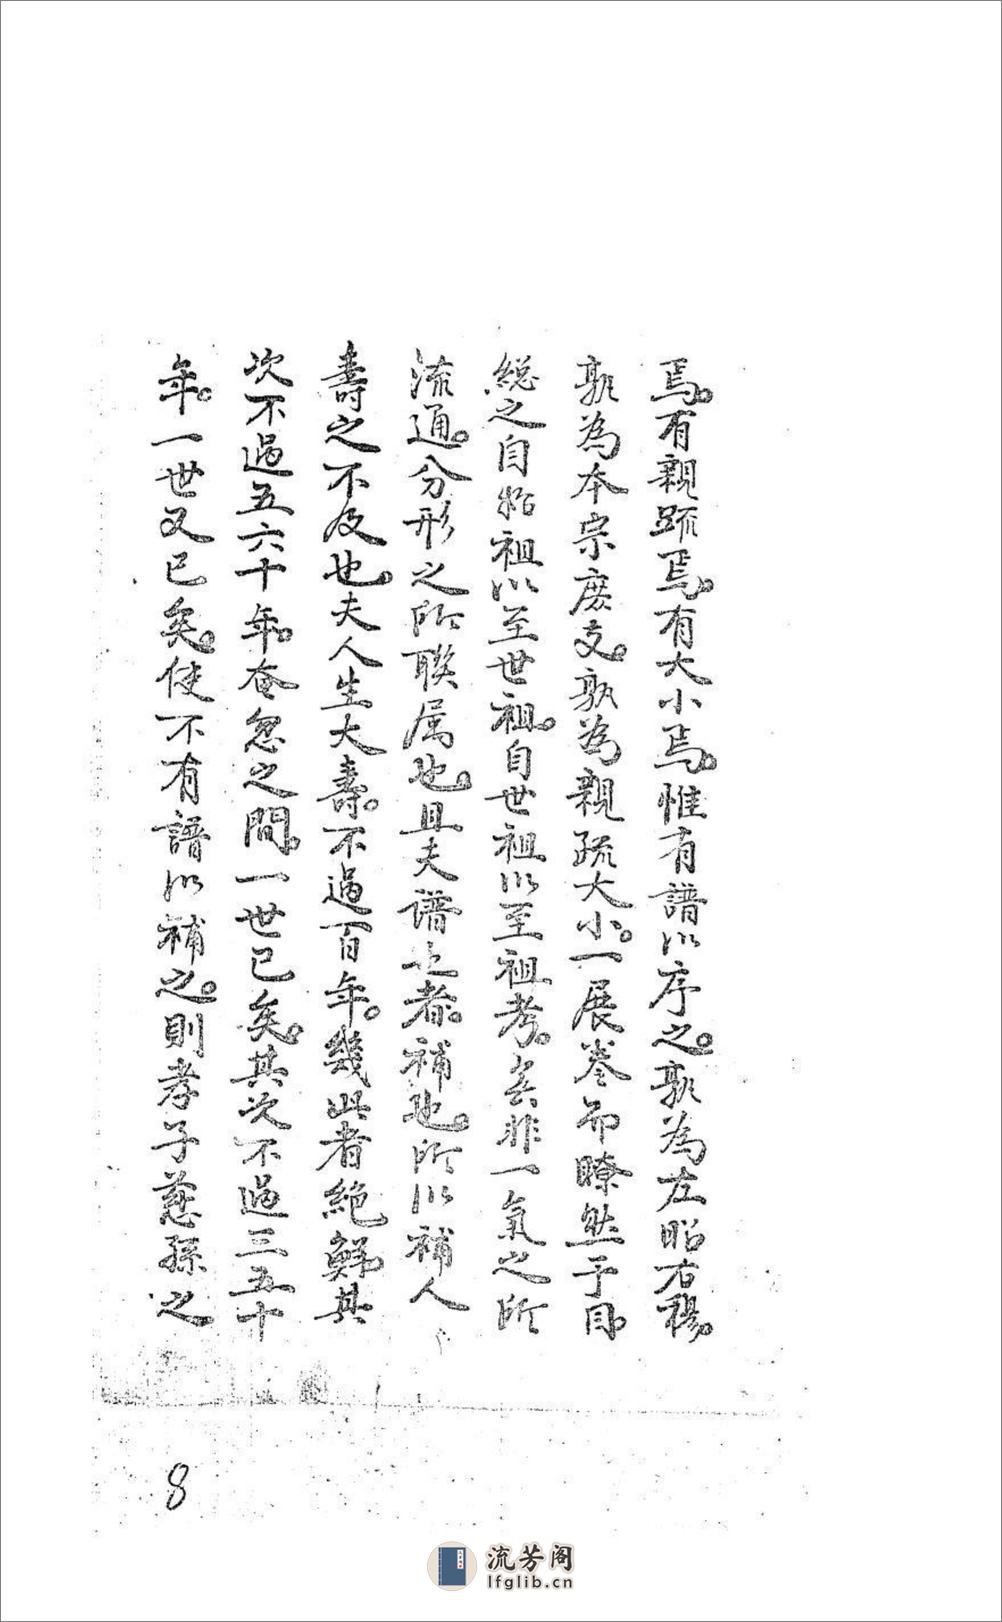 焉。有親疏焉。有大小焉。惟有譜以序之。孰為左昭右穆。
孰為本宗庶支。孰為親疏大小。一展卷而瞭然于目
総之自始祖以至世祖。自世祖以至祖考。矣非一氣之所
流通。分形之所聯属也。且夫譜也者。補也。所以補人
壽之不及也。夫人生大壽。不過百年。幾此者絕鮮。其
次不過五六十年。奄忽之間。一世已矣。其次不過三五十
年。一世又已矣。使不有譜以補之。則孝子慈孫之
8
流芳阁
lfglib.cn